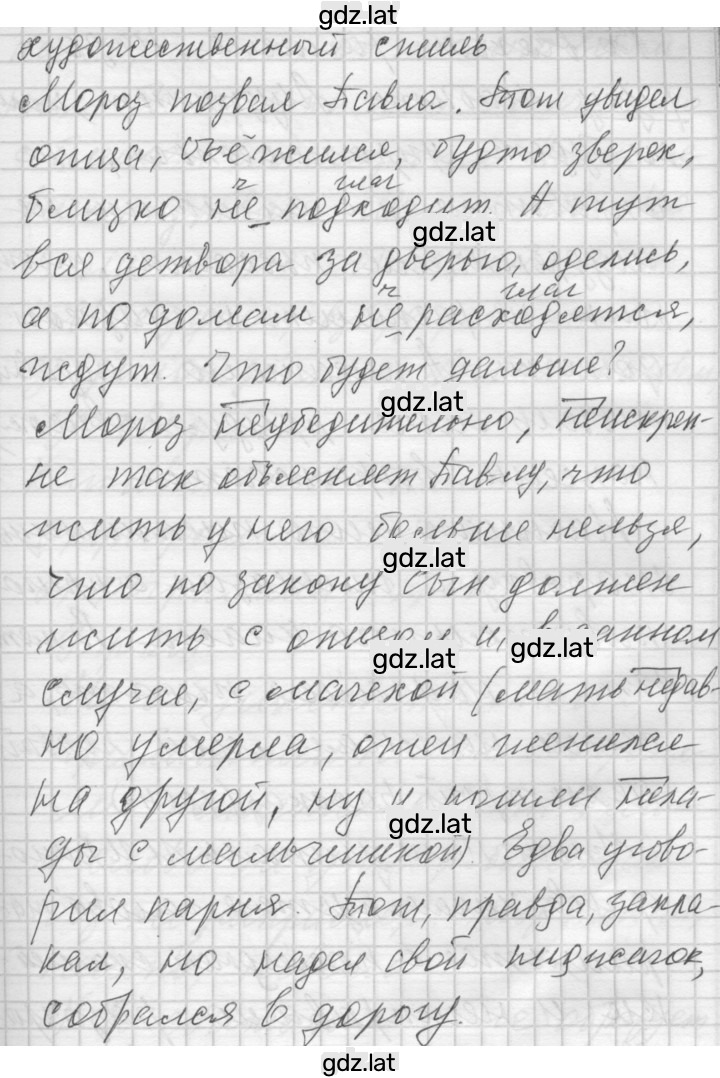 gdz.lat
художественный стиль
Мороз позвал Павла. Тот увидел
отца, съёжился, будто зверек,
ч глаг
близко не подходит. А тут
gdz.lat
вся детвора за дверью, оделись,
ч глаг
а по домам не расходятся,
ждут. Что будет дальше?
gdz.lat
Мороз неубедительно, неискрен-
не так объясняет Павлу, что
жить у него больше нельзя,
gdz.lat
что по закону сын должен
жить с отцом и, в данном
gdz.lat gdz.lat
случае, с мачехой (мать недав-
но умерла, отец женился
на другой, ну и пошли нела-
gdz.lat
ды с мальчишкой). Едва угово-
рил парня. Тот, правда, запла-
кал, но надел свой пиджачок,
собрался в дорогу.
gdz.lat